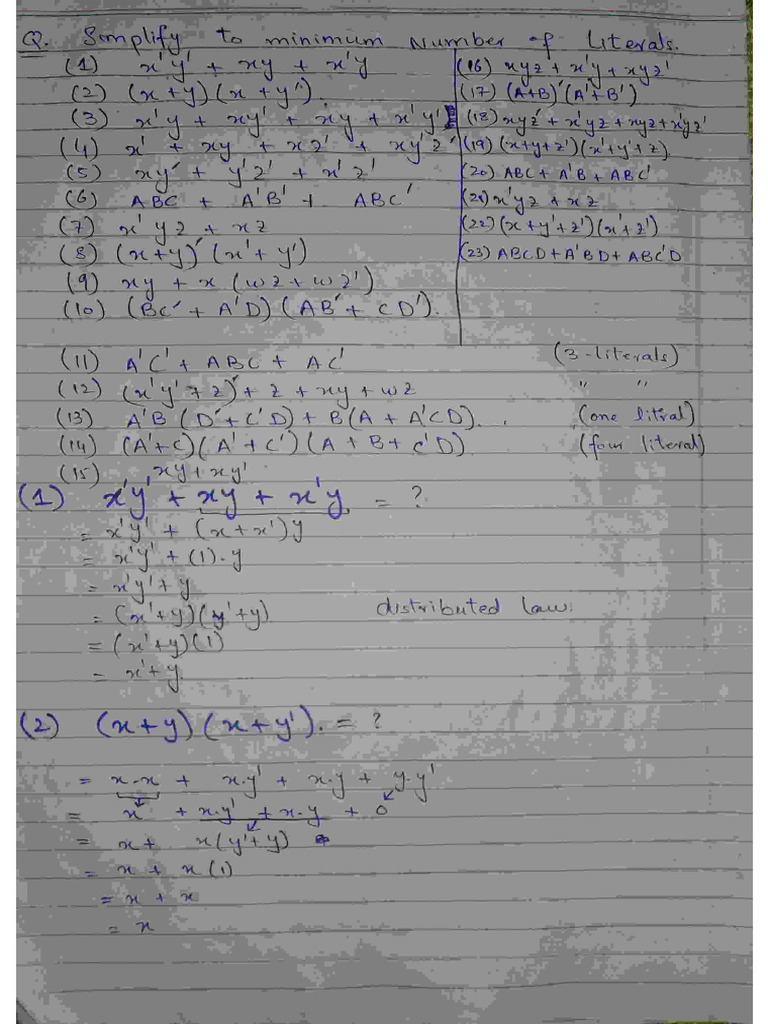 Q. Simplify to minimum Number of Literals.
(1) x'y' + xy + x'y
(2) (x+y)(x+y')
(3) x'y + xy' + xy + x'y'
(4) x' + xy + xz' + xy'z'
(5) xy' + y'z' + x'z'
(6) ABC + A'B' + ABC'
(7) x'yz + xz
(8) (x+y)'(x'+y')
(9) xy + x(wz + wz')
(10) (BC' + A'D)(AB' + CD').
(16) xyz + x'y + xyz'
(17) (A+B)'(A'+B')
(18) xyz' + x'yz + xyz + x'yz'
(19) (x+y+z')(x'+y'+z)
(20) ABC + A'B + ABC'
(21) x'yz + xz
(22) (x+y'+z')(x'+z')
(23) ABCD + A'BD + ABC'D
(11) A'C' + ABC + AC' (3-literals)
(12) (x'y'+z)' + z + xy + wz " "
(13) A'B(D'+C'D) + B(A+A'CD). (one litral)
(14) (A'+C)(A'+C')(A+B+C'D) (four literal)
(15) xy+xy'
(1) x'y' + xy + x'y = ?
= x'y' + (x+x')y
= x'y' + (1).y
= x'y' + y
= (x'+y)(y'+y) distributed law.
= (x'+y)(1)
= x'+y.
(2) (x+y)(x+y'). = ?
= x.x + x.y' + x.y + y.y'
= x + x.y' + x.y + 0
= x + x(y'+y)
= x + x(1)
= x + x
= x